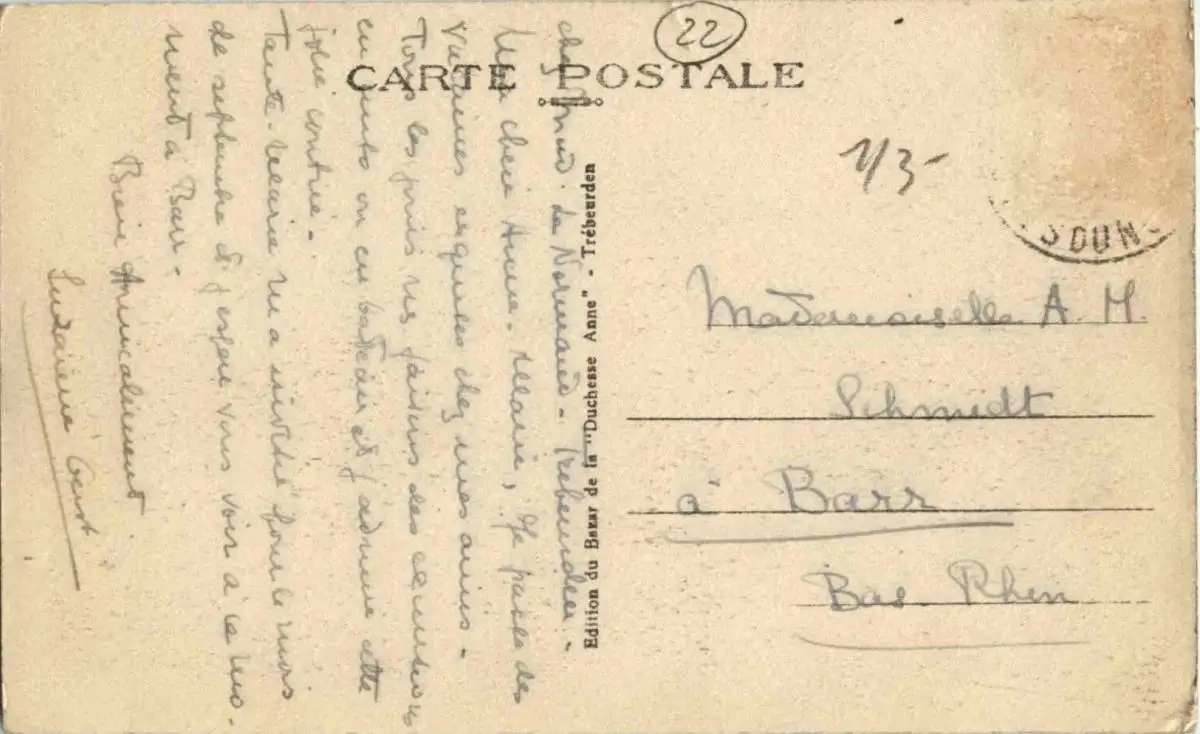 22
CARTE POSTALE
1/3-
S DUN
chez Mme de Normand - Trébeurden -
Ma chère Anne-Marie, Je passe des
vacances exquises chez mes amis -
Tous les jours nous faisons des excursions
en auto ou en bateau et j'admire cette
jolie contrée -
Tante Marie m'a invité pour le mois
de septembre & j'espère vous voir à ce mo-
ment à Barr -
Bien Amicalement
Edition du Bazar de la "Duchesse Anne" - Trébeurden
Mademoiselle A. M.
Schmidt
à Barr
Bas Rhin